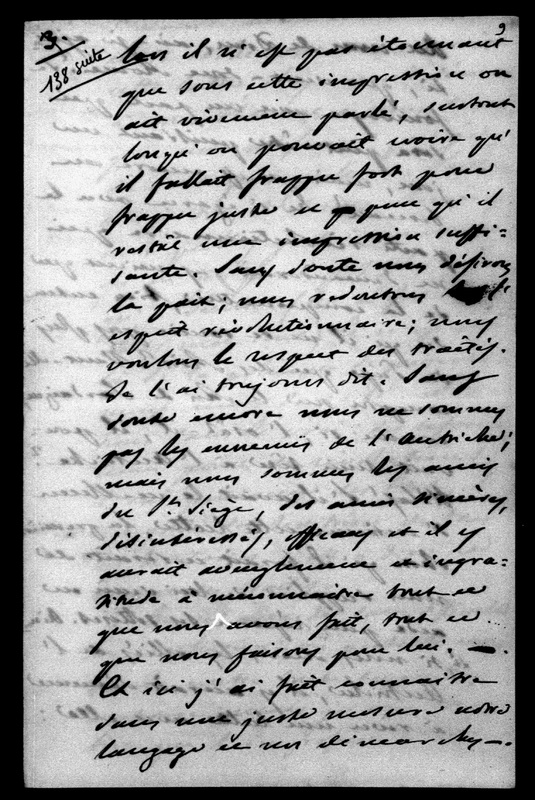 3.
9
138 suite
lors il n'est pas étonnant
que sous cette impression on
ait vivement parlé, surtout
lorsqu'on pouvait croire qu'
il fallait frapper fort pour
frapper juste et pour qu'il
restât une impression suffi-
sante. Sans doute nous désirons
la paix; nous redoutons l'
esprit révolutionnaire; nous
voulons le respect des traités.
Je l'ai toujours dit. Sans
doute encore nous ne sommes
pas les ennemis de l'Autriche;
mais nous sommes les amis
du St. Siège, des amis sincères,
désintéressés, efficaces et il y
aurait aveuglement et ingra-
titude à méconnaître tout ce
que nous avons fait, tout ce
que nous faisons pour lui. —
Et ici j'ai fait connaître
dans une juste mesure notre
langage et nos démarches —.